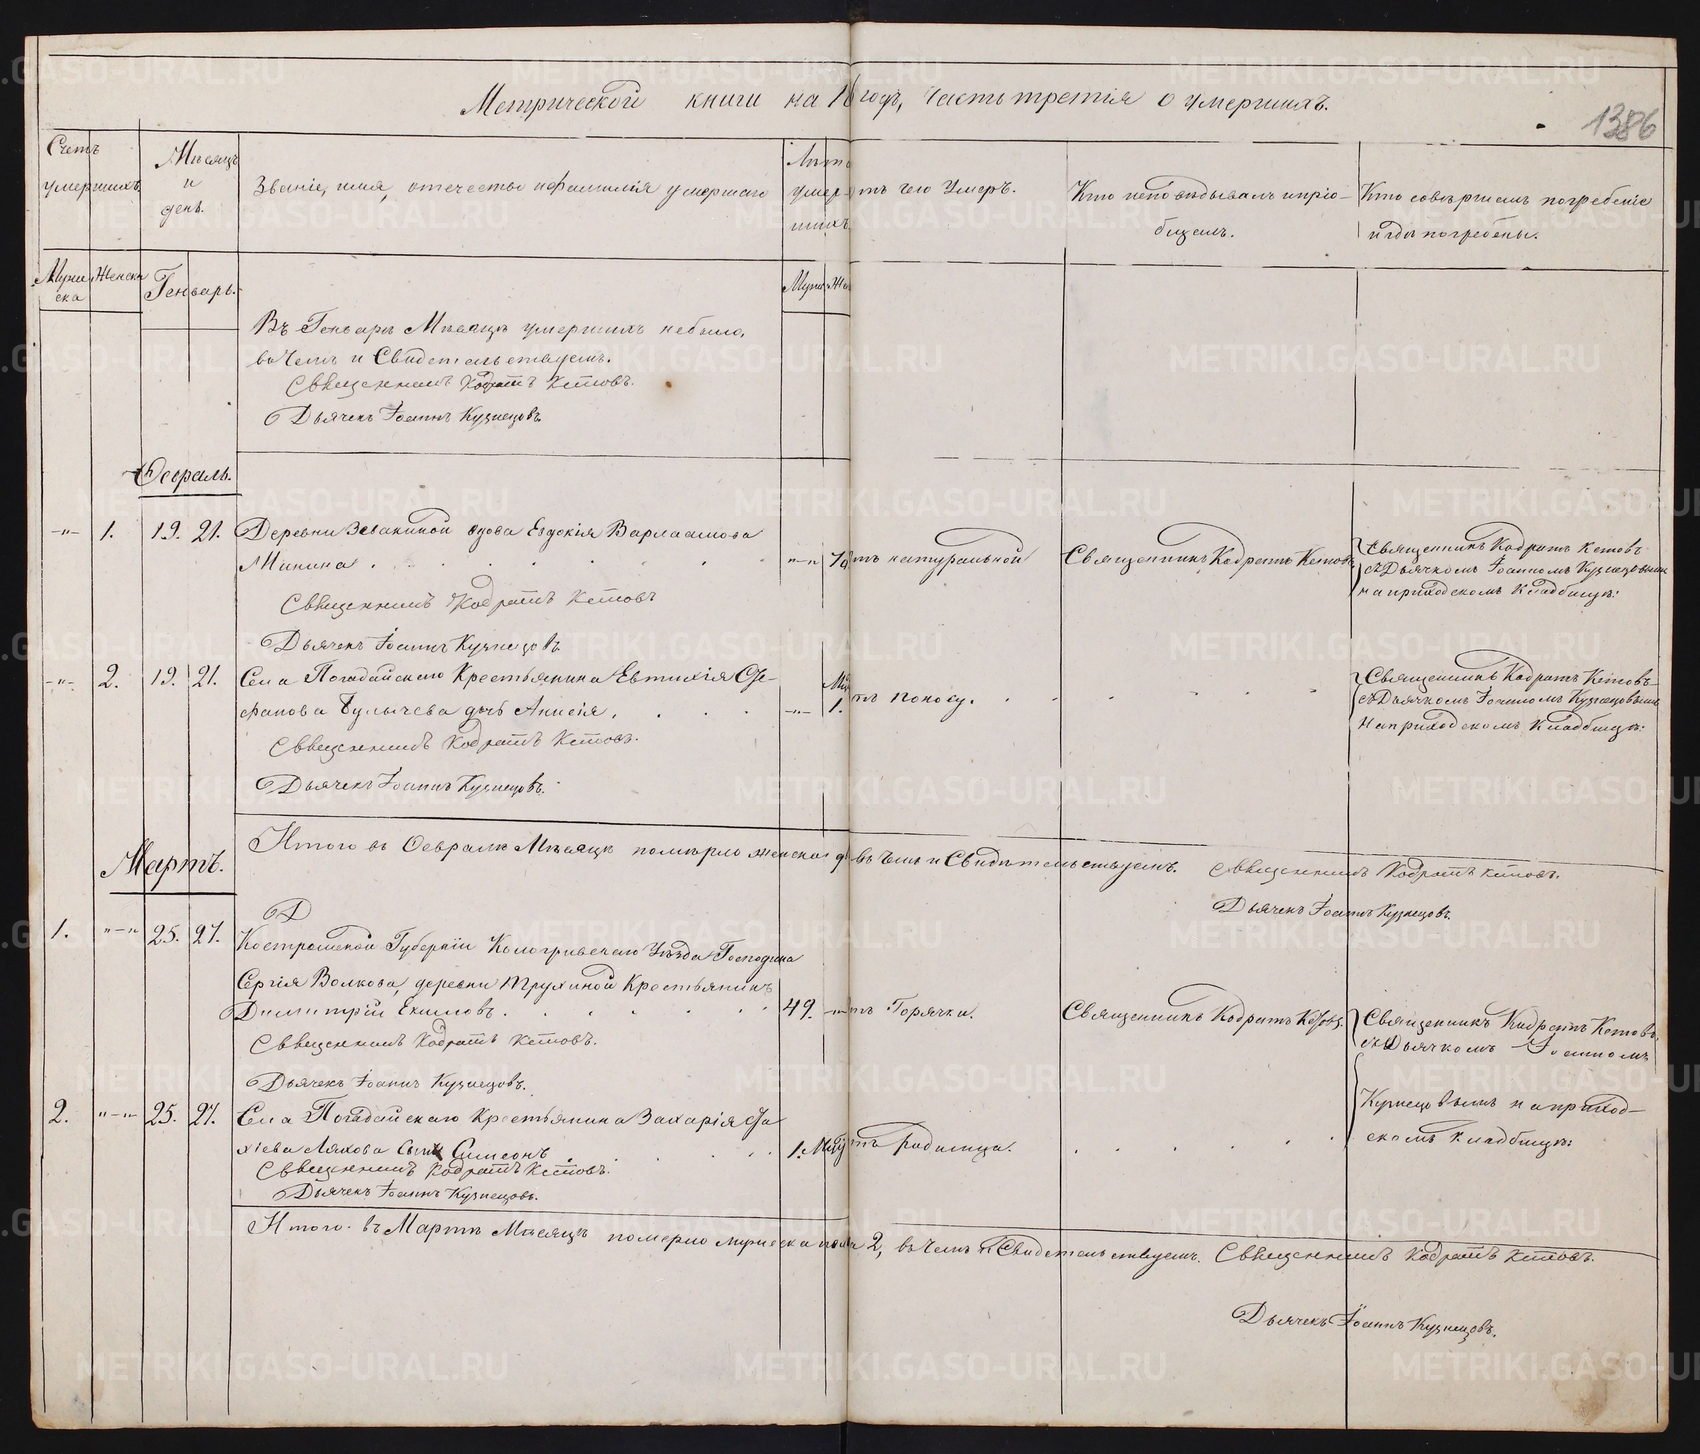 Метрической книги на 18 годъ, часть третія о умершихъ.
1386
Счетъ умершихъ
Мѣсяцъ и день.
Званіе, имя, отечество и фамилія умершаго
Лѣта умершихъ
отъ чего умеръ.
Кто исповѣдывалъ и пріобщалъ.
Кто совершалъ погребеніе и гдѣ погребены.
Мужеска Женска
Генварь.
Муж Жен
Въ Генварѣ Мѣсяцѣ умершихъ небыло,
въ чемъ и Свидетельствуемъ.
Священникъ Кодратъ Кетовъ.
Дьячекъ Іоаннъ Кузнецовъ.
Февраль.
-"- 1. 19. 21. Деревни вдова Евдокія Варлаамова
Минина
-"- 70 отъ натуральной
Священникъ Кодратъ Кетовъ
Священникъ Кодратъ Кетовъ
съ Дьячкомъ Іоанномъ Кузнецовымъ
на приходскомъ Кладбищѣ.
Священникъ Кодратъ Кетовъ
Дьячекъ Іоаннъ Кузнецовъ
-"- 2. 19. 21. Села Погадайскаго Крестьянина Евтихія Сте-
фанова Булычева дочь Анисія.
-"- 1. отъ поносу.
Священникъ Кодратъ Кетовъ
съ Дьячкомъ Іоанномъ Кузнецовымъ
на приходскомъ Кладбищѣ.
Священникъ Кодратъ Кетовъ.
Дьячекъ Іоаннъ Кузнецовъ.
Итого въ Февралѣ Мѣсяцѣ померло женска въ чемъ и Свидѣтельствуемъ. Священникъ Кодратъ Кетовъ.
Дьячекъ Іоаннъ Кузнецовъ.
Мартъ.
Д
1. "-" 25. 27. Костромской Губерніи Кологривскаго Уѣзда Господина
Сергія Волкова, деревни Трухиной Крестьянинъ
Димитрій Екимовъ.
49. отъ Горячки.
Священникъ Кодратъ Кетовъ.
Священникъ Кодратъ Кетовъ,
съ Дьячкомъ Іоанномъ
Кузнецовымъ на приход-
скомъ кладбищѣ.
Священникъ Кодратъ Кетовъ.
Дьячекъ Іоаннъ Кузнецовъ.
2. "-" 25. 27. Села Погадайскаго Крестьянина Захарія
Ляхова сынъ Симеонъ
1. отъ Родимца.
Священникъ Кодратъ Кетовъ.
Дьячекъ Іоаннъ Кузнецовъ.
Итого въ Мартѣ Мѣсяцѣ померло мужеска пола 2, въ чемъ и Свидетельствуемъ. Священникъ Кодратъ Кетовъ.
Дьячекъ Іоаннъ Кузнецовъ.
METRIKI.GASO-URAL.RU